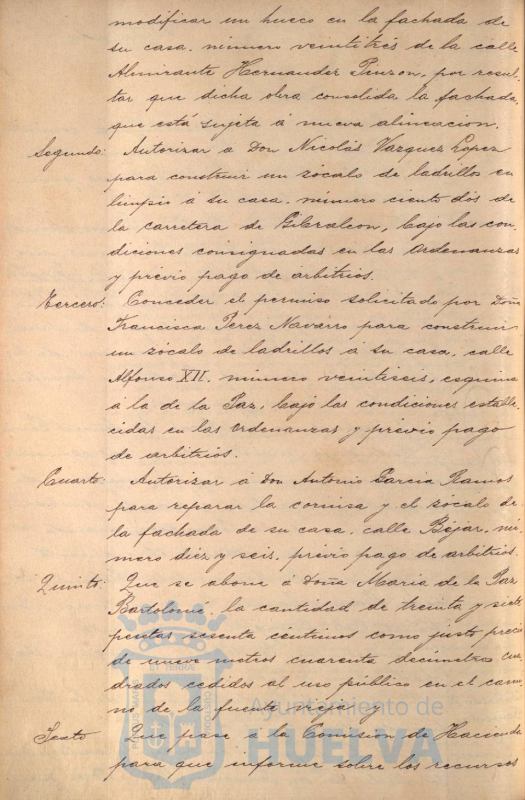 modificar un hueco en la fachada de
su casa, número veintitrés de la calle
Almirante Hernandez Pinzon, por resul-
tar que dicha obra consolida la fachada,
que está sujeta á nueva alineacion.
Segundo: Autorizar á Don Nicolás Vazquez Lopez
para construir un zócalo de ladrillos en
limpio á su casa, número ciento dos de
la carretera de Gibraleon, bajo las con-
diciones consignadas en las Ordenanzas
y previo pago de arbitrios.
Tercero: Conceder el permiso solicitado por Doña
Francisca Perez Navarro para construir
un zócalo de ladrillos á su casa, calle
Alfonso XII, número veintiseis, esquina
á la de la Paz, bajo las condiciones estable
cidas en las Ordenanzas y previo pago
de arbitrios.
Cuarto: Autorizar á Don Antonio Garcia Ramos
para reparar la cornisa y el zócalo de
la fachada de su casa, calle Béjar, nú-
mero diez y seis, previo pago de arbitrios.
Quinto: Que se abone á Doña Maria de la Paz
Bartolomé, la cantidad de treinta y siete
pesetas sesenta céntimos como justo precio
de nueve metros cuarenta decímetros cua
drados cedidos al uso público en el cami
no de la fuente vieja; y
Sexto Que pase á la Comision de Hacienda
para que informe sobre los recursos
Ayuntamiento de
HUELVA